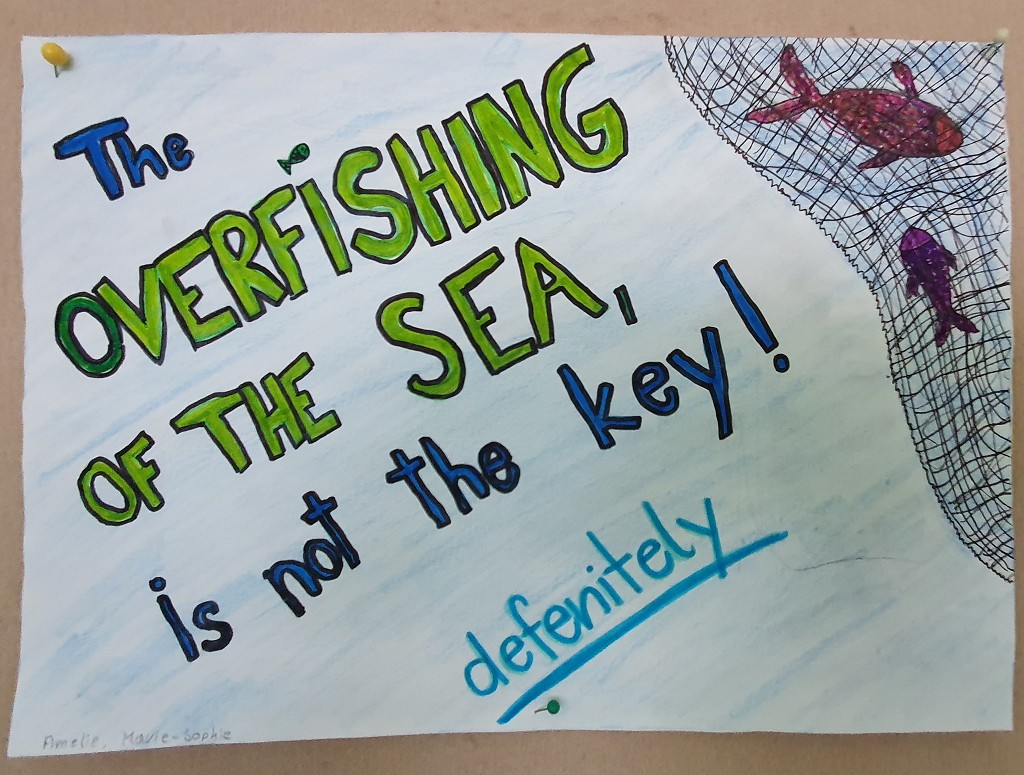 The
OVERFiSHING
OF THE SEA,
is not the key!
defenitely
Amelie, Marie-Sophie